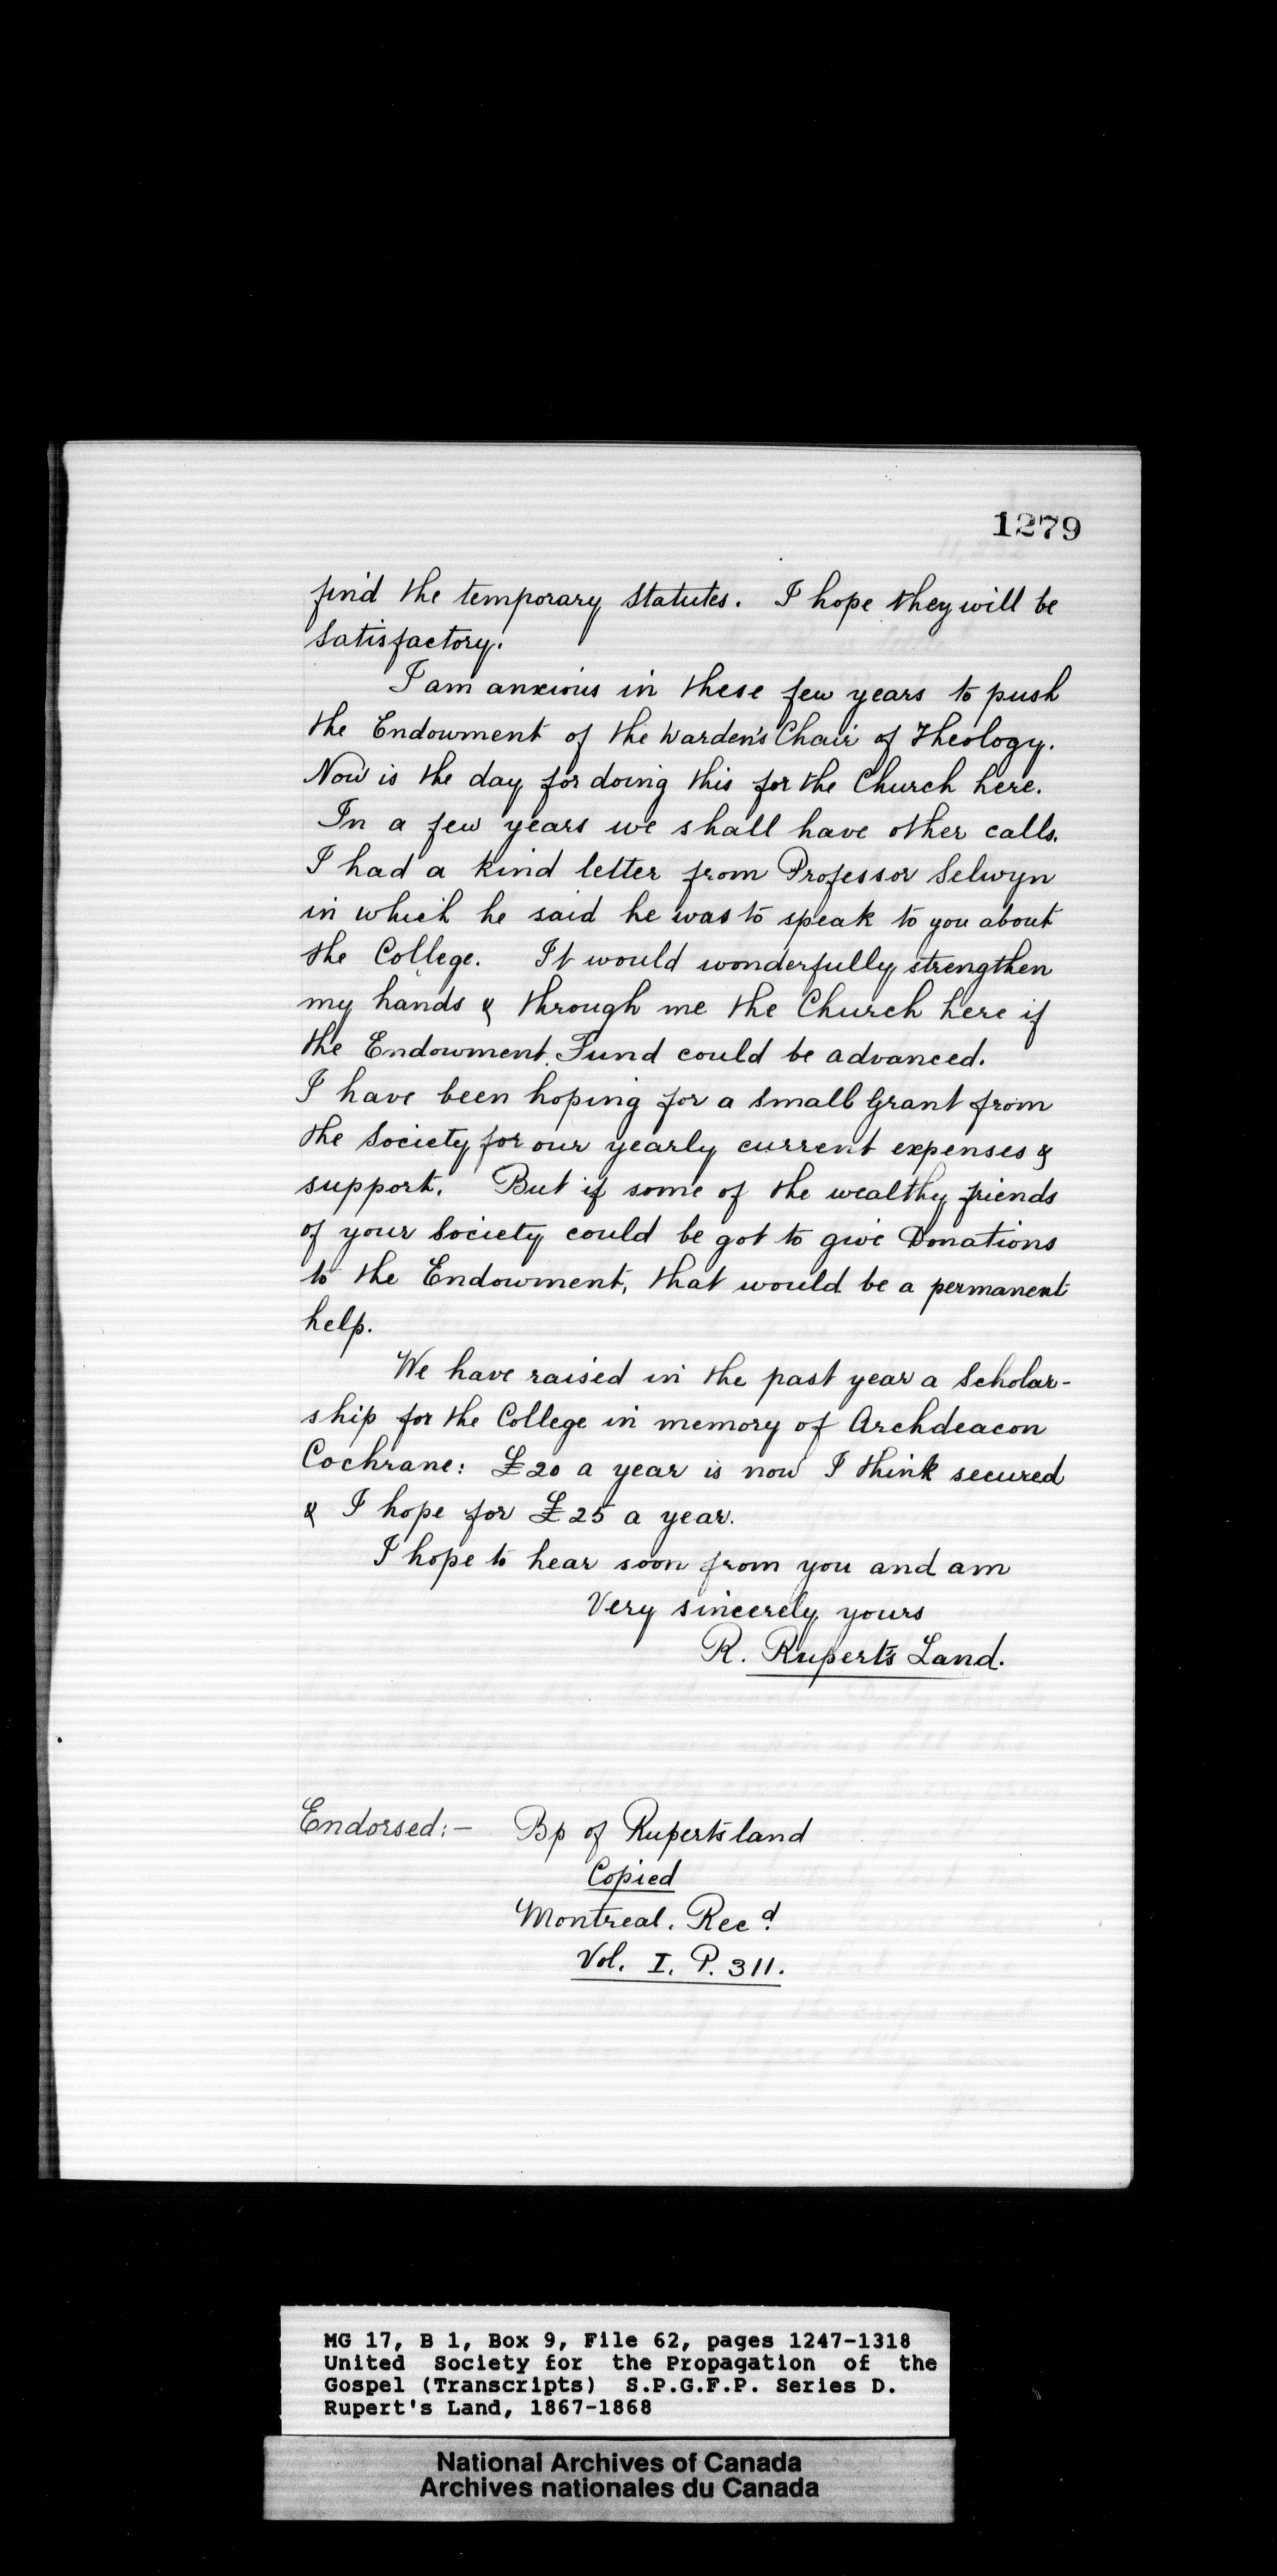 1279
find the temporary Statutes. I hope they will be
satisfactory.
I am anxious in these few years to push
the Endowment of the Warden's Chair of Theology.
Now is the day for doing this for the Church here.
In a few years we shall have other calls.
I had a kind letter from Professor Selwyn
in which he said he was to speak to you about
the College. It would wonderfully strengthen
my hands & through me the Church here if
the Endowment Fund could be advanced.
I have been hoping for a small Grant from
the Society for our yearly current expenses &
support. But if some of the wealthy friends
of your Society could be got to give Donations
to the Endowment, that would be a permanent
help.
We have raised in the past year a Scholar-
ship for the College in memory of Archdeacon
Cochrane: £20 a year is now I think secured
& I hope for £25 a year.
I hope to hear soon from you and am
Very sincerely yours
R. Rupert's Land.
Endorsed:- Bp of Rupert's land
Copied
Montreal. Recd.
Vol. I. P. 311.
MG 17, B 1, Box 9, File 62, pages 1247-1318
United Society for the Propagation of the
Gospel (Transcripts) S.P.G.F.P. Series D.
Rupert's Land, 1867-1868
National Archives of Canada
Archives nationales du Canada